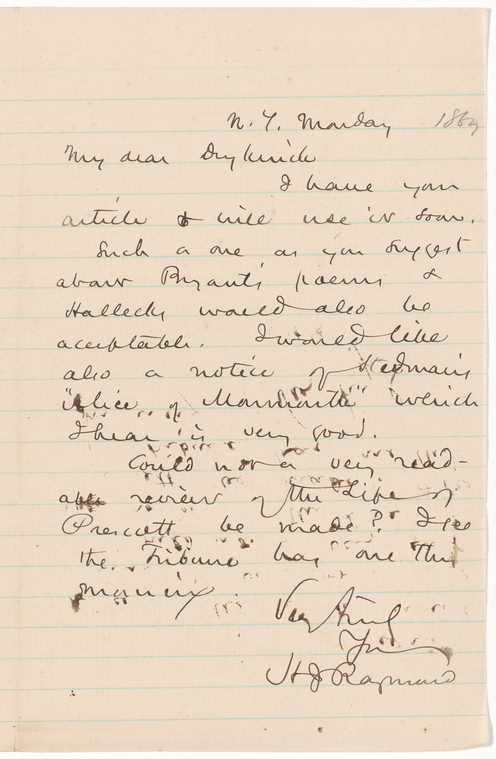 N. Y. Monday 1864
My dear Duyckinck
I have your
article & will use it soon.
Such a one as you suggest
about Bryant's poems &
Hallecks would also be
acceptable. I would like
also a notice of Stedman's
"Alice of Monmouth" which
I hear is very good.
Could not a very read-
able review of the Life of
Prescott be made? I see
the Tribune has one this
morning.
Very truly
Yours
H J Raymond